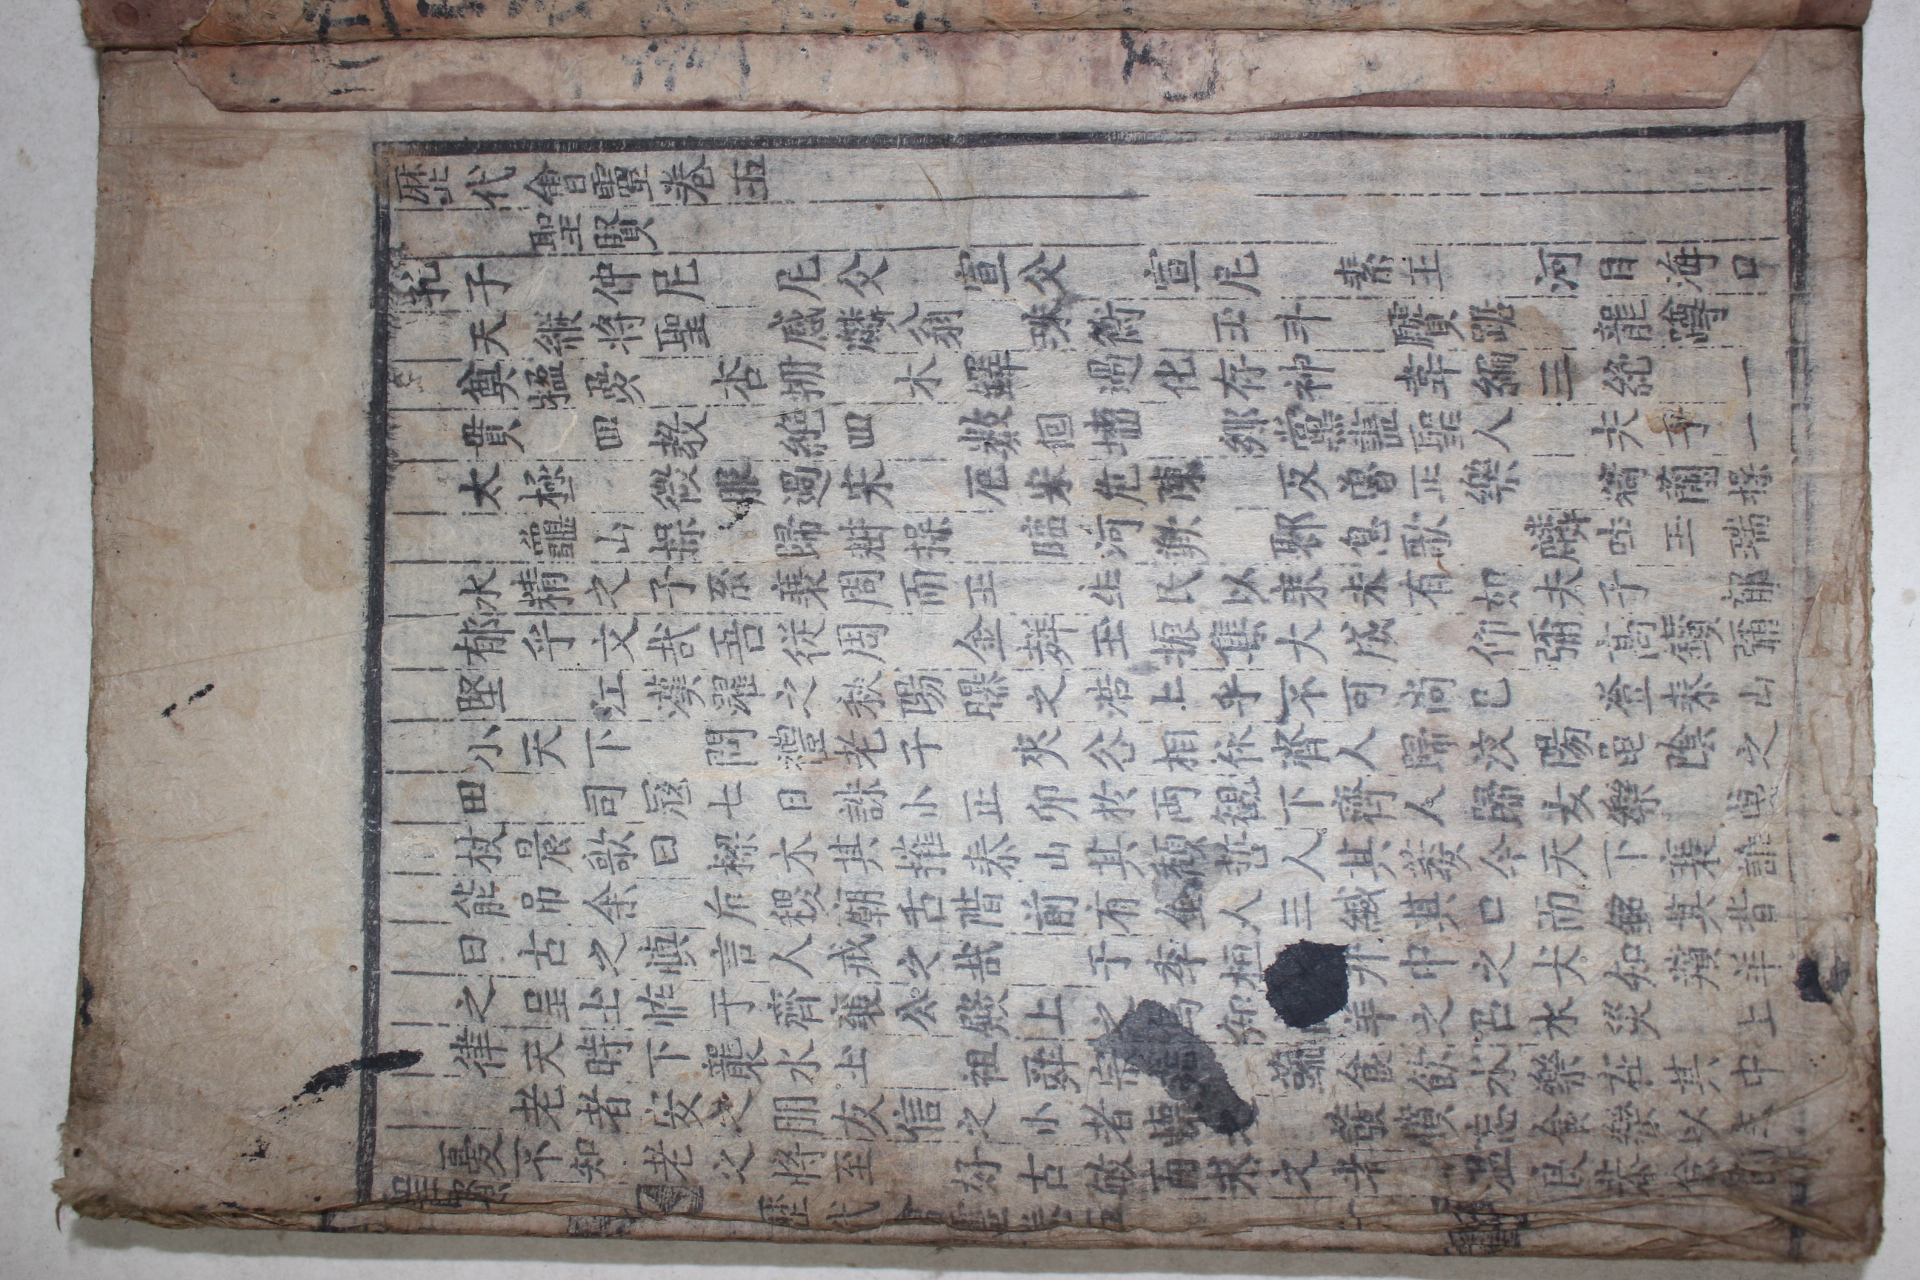 歷代會靈卷五
聖賢
孔子 仲尼 尼父 宣父 宣尼 素王 河目海口
天縱將聖 感麟翁 珠衡 玉斗 龍蹲
奠楹夢 杏 木鐸 過化存神 韋編三絶 一
貫 四教 絶四 數仞墻 鄉黨 聖人 夫子一
太極 微服過宋 厄宋危陳 反魯正樂 猗蘭操
龜山操 歸 操 臨河歎 息歌 麟吐玉瑞
水精之子系衰周而王 生民以來未有如夫子 郁
郁乎文哉吾從周 金聲玉振集大成 仰彌高鑽彌
堅 江漢濯之秋陽曝之浩上乎不可尚已 登泰山
小天下 問禮老子 夾谷相 齊人歸汶陽龜陰之
田 司寇七日誅小正卯於兩觀下齊人歸女樂 曳
杖晨歌曰樑木其摧泰山其頹哲人其萎今天下 誰
能吊余 后稷廟 階前有金人三緘其口而銘其背
曰古之慎言人戒之哉 于季桓 井中之犬知 羊
之 上 于齊襄公 上之 知 羊之 水災 上
律天時下襲水土 祖 宗 蔬食飲水樂在其中
老者安之朋友信之小者懷之 發憤忘食樂以忘
憂不知老之將至 好古敏而求之者 溫良恭儉
聖賢 歷代會靈卷五 一